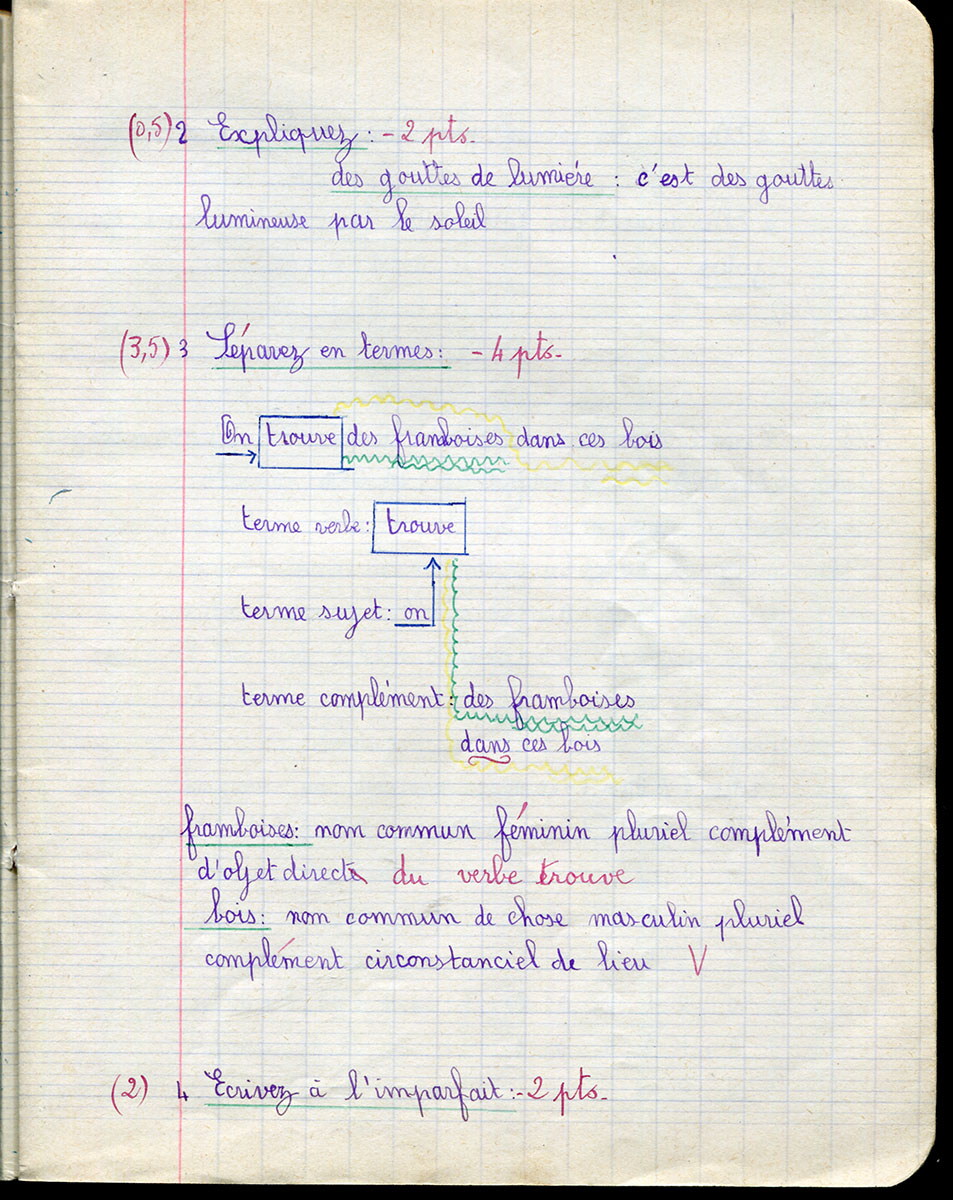 (0,5) 2 Expliquez : - 2 pts.
des gouttes de lumière : c'est des gouttes
lumineuse par le soleil
(3,5) 3 Séparez en termes : - 4 pts.
On trouve des framboises dans ces bois
terme verbe : trouve
terme sujet : on
terme complément : des framboises
dans ces bois
framboises : nom commun féminin pluriel complément
d'objet direct du verbe trouve
bois : nom commun de chose masculin pluriel
complément circonstanciel de lieu V
(2) 4 Ecrivez à l'imparfait : - 2 pts.